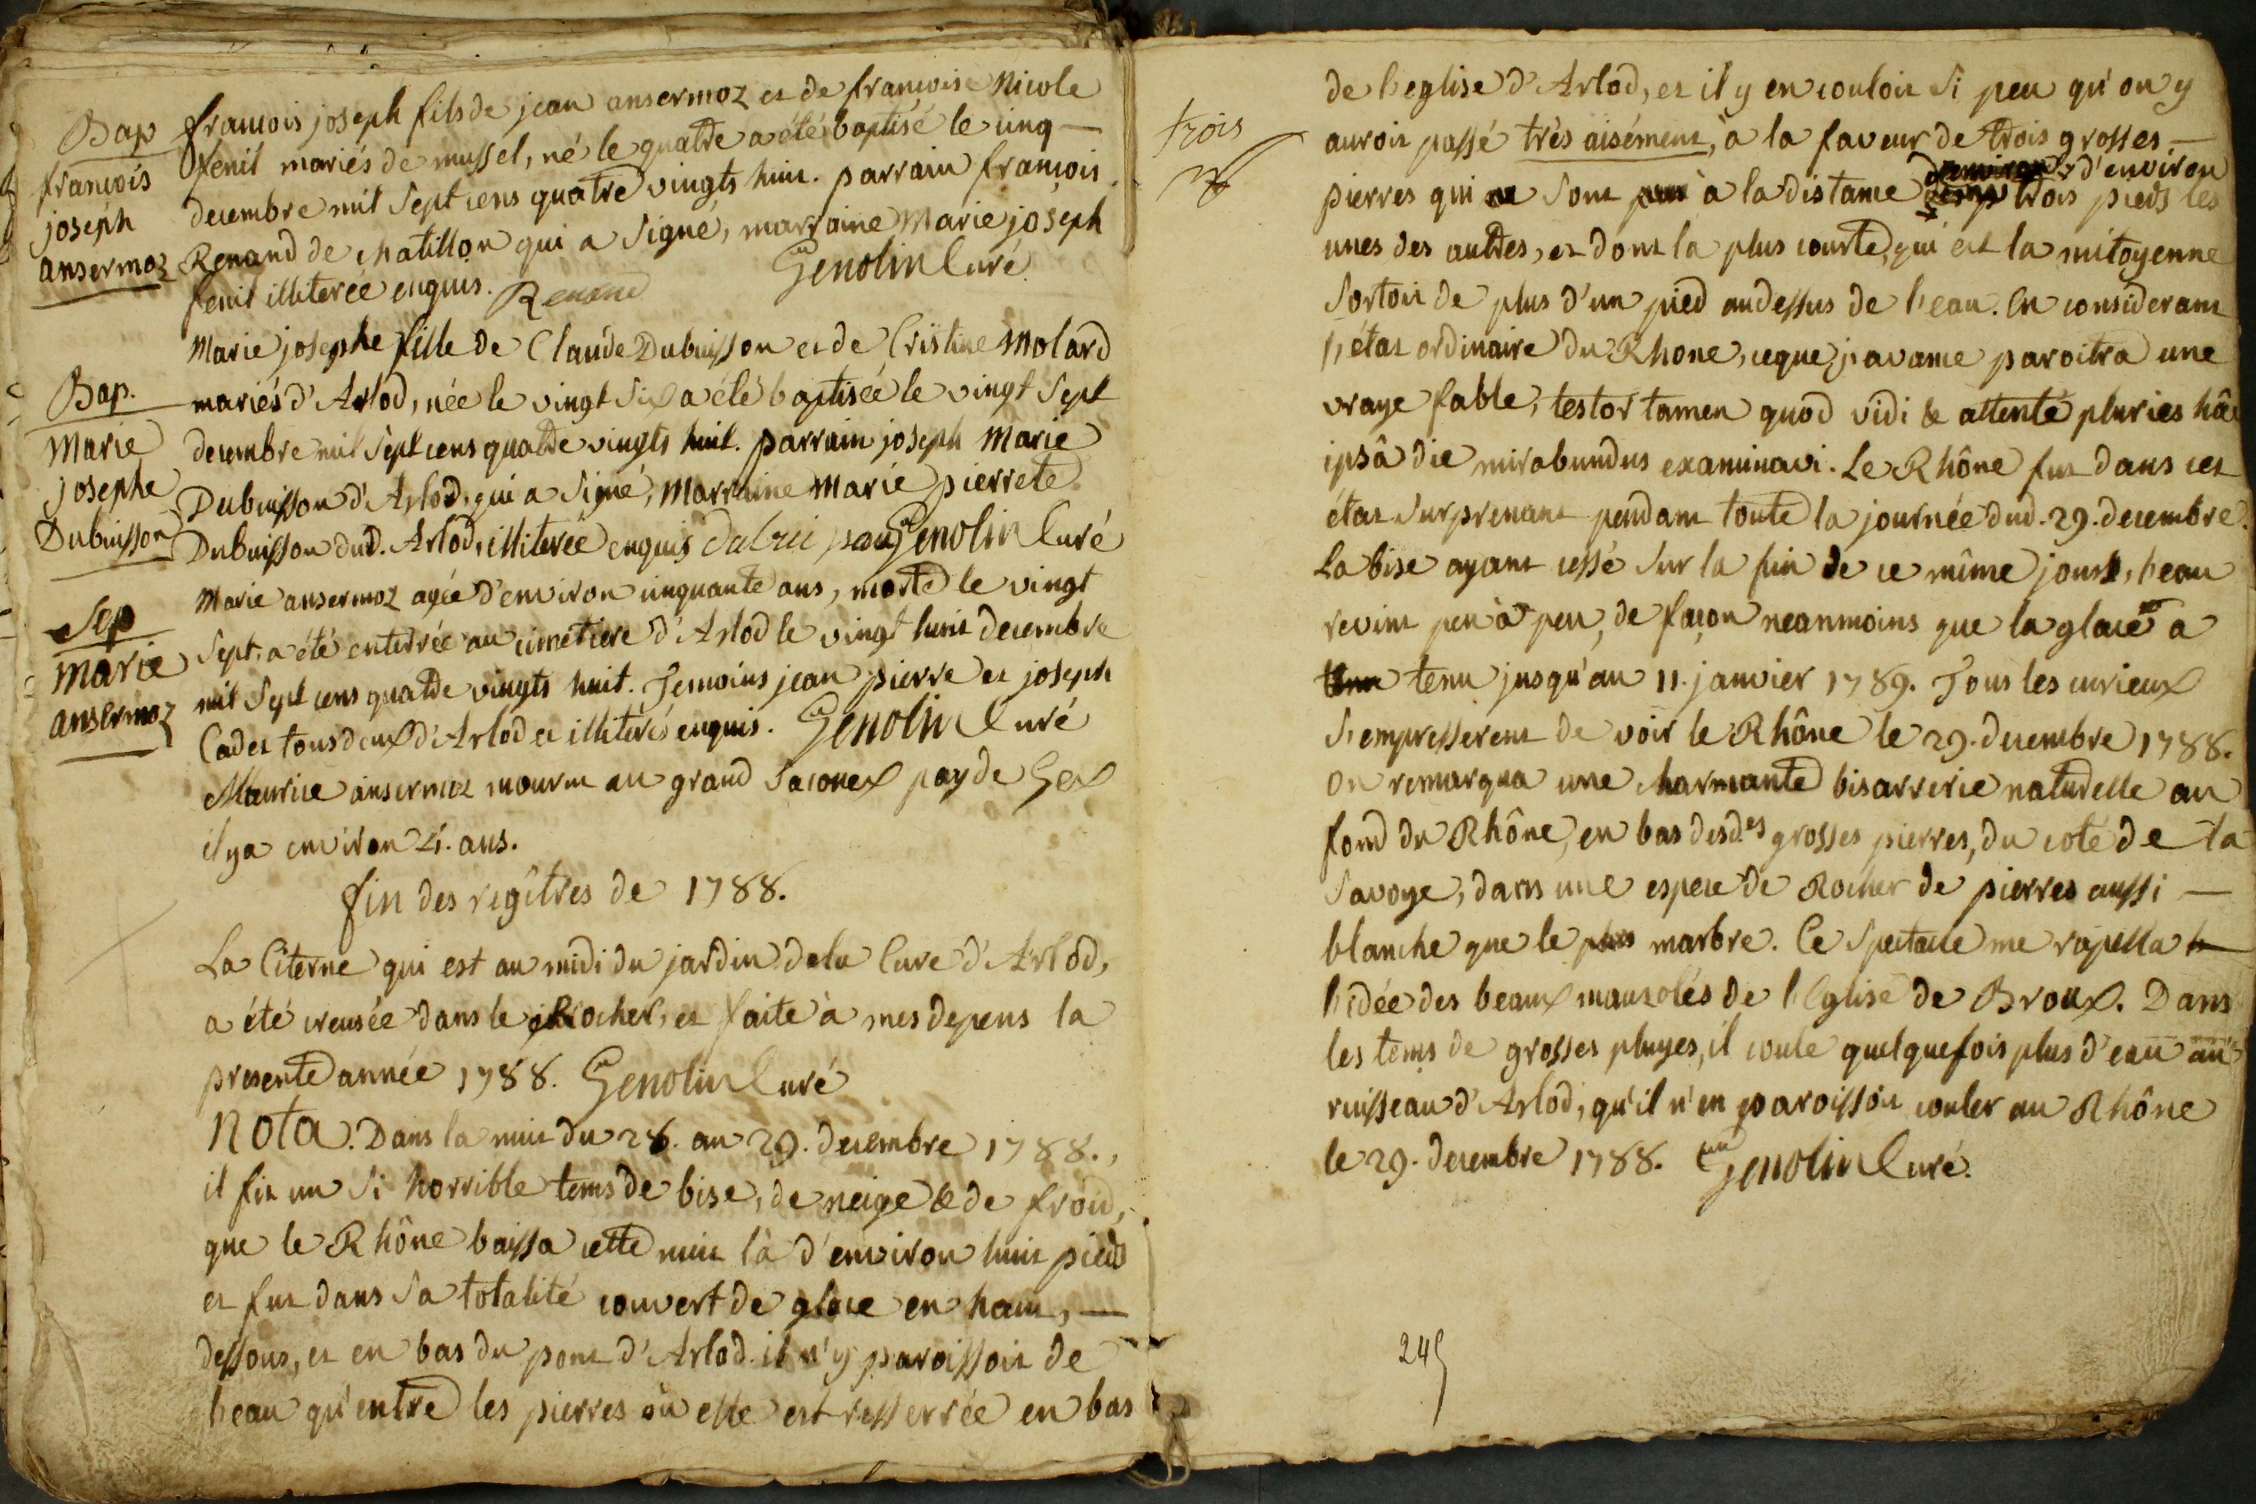 Bap
francois
joseph
ansermoz
francois joseph fils de jean ansermoz et de francoise Nicole
fenil mariés de mussel, né le quatre a été baptisé le cinq —
decembre mil sept cens quatre vingts huit. parrain francois
Renand de chatillon qui a signé, marraine Marie joseph
fenil illiterée enquis. Renand Genolin Curé
Bap.
Marie
josephe
Dubuisson
Marie josephe fille de Claude Dubuisson et de Cristine Molard
mariés d'Arlod, née le vingt six a été baptisée le vingt sept
decembre mil sept cens quatre vingts huit. parrain joseph Marie
Dubuisson d'Arlod, qui a signé, Marraine Marie pierrete
Dubuisson dud. Arlod, illiterée enquis Genolin Curé
Sep
Marie
ansermoz
Marie ansermoz agée d'environ cinquante ans, morte le vingt
sept, a été enterrée au cimetiere d'Arlod le vingt huit decembre
mil sept cens quatre vingts huit. Temoins jean pierre et joseph
Cadet tous deux d'Arlod et illiterés enquis. Genolin Curé
Maurice ansermoz mourut au grand saconex pay de Gex
il y a environ 4. ans.
fin des regîtres de 1788.
La Citerne qui est au midi du jardin de la Cure d'Arlod,
a été creusée dans le Rocher, et faite à mes depens la
presente année 1788. Genolin Curé
Nota. Dans la nuit du 28. au 29. decembre 1788.,
il fit un si horrible tems de bise, de neige & de froid,
que le Rhône baissa cette nuit là d'environ huit pieds
et fut dans sa totalité couvert de glace en haut, —
dessous, et en bas du pont d'Arlod. il n'y paroissoit de
l'eau qu'entre les pierres où elle est resserrée en bas
trois
de l'eglise d'Arlod, et il y en couloit si peu qu'on y
auroit passé très aisément, à la faveur de trois grosses —
pierres qui sont à la distance d'environ
trois pieds les
unes des autres, et dont la plus courte, qui est la mitoyenne
sortoit de plus d'un pied au dessus de l'eau. En considerant
l'état ordinaire du Rhone, ce que j'avance paroitra une
vraye fable, testor tamen quod vidi & attente pluries hâc
ipsâ die mirabundus examinavi. Le Rhône fut dans cet
état surprenant pendant toute la journée dud. 29. decembre.
La bise ayant cessé sur la fin de ce même jour, l'eau
revint peu à peu, de façon neanmoins que la glace a
tenu jusqu'au 11. janvier 1789. Tous les curieux
s'empresserent de voir le Rhône le 29. decembre 1788.
on remarqua une charmante bisarrerie naturelle au
fond du Rhône, en bas desd.es grosses pierres, du coté de la
Savoye, dans une espece de Rocher de pierres aussi —
blanche que le marbre. Ce spectacle me rapella
l'idée des beaux mauzolés de l'Eglise de Broux. Dans
les tems de grosses pluyes, il coule quelquefois plus d'eau au
ruisseau d'Arlod, qu'il n'en paroissoit couler au Rhône
le 29. decembre 1788. Genolin Curé.
245